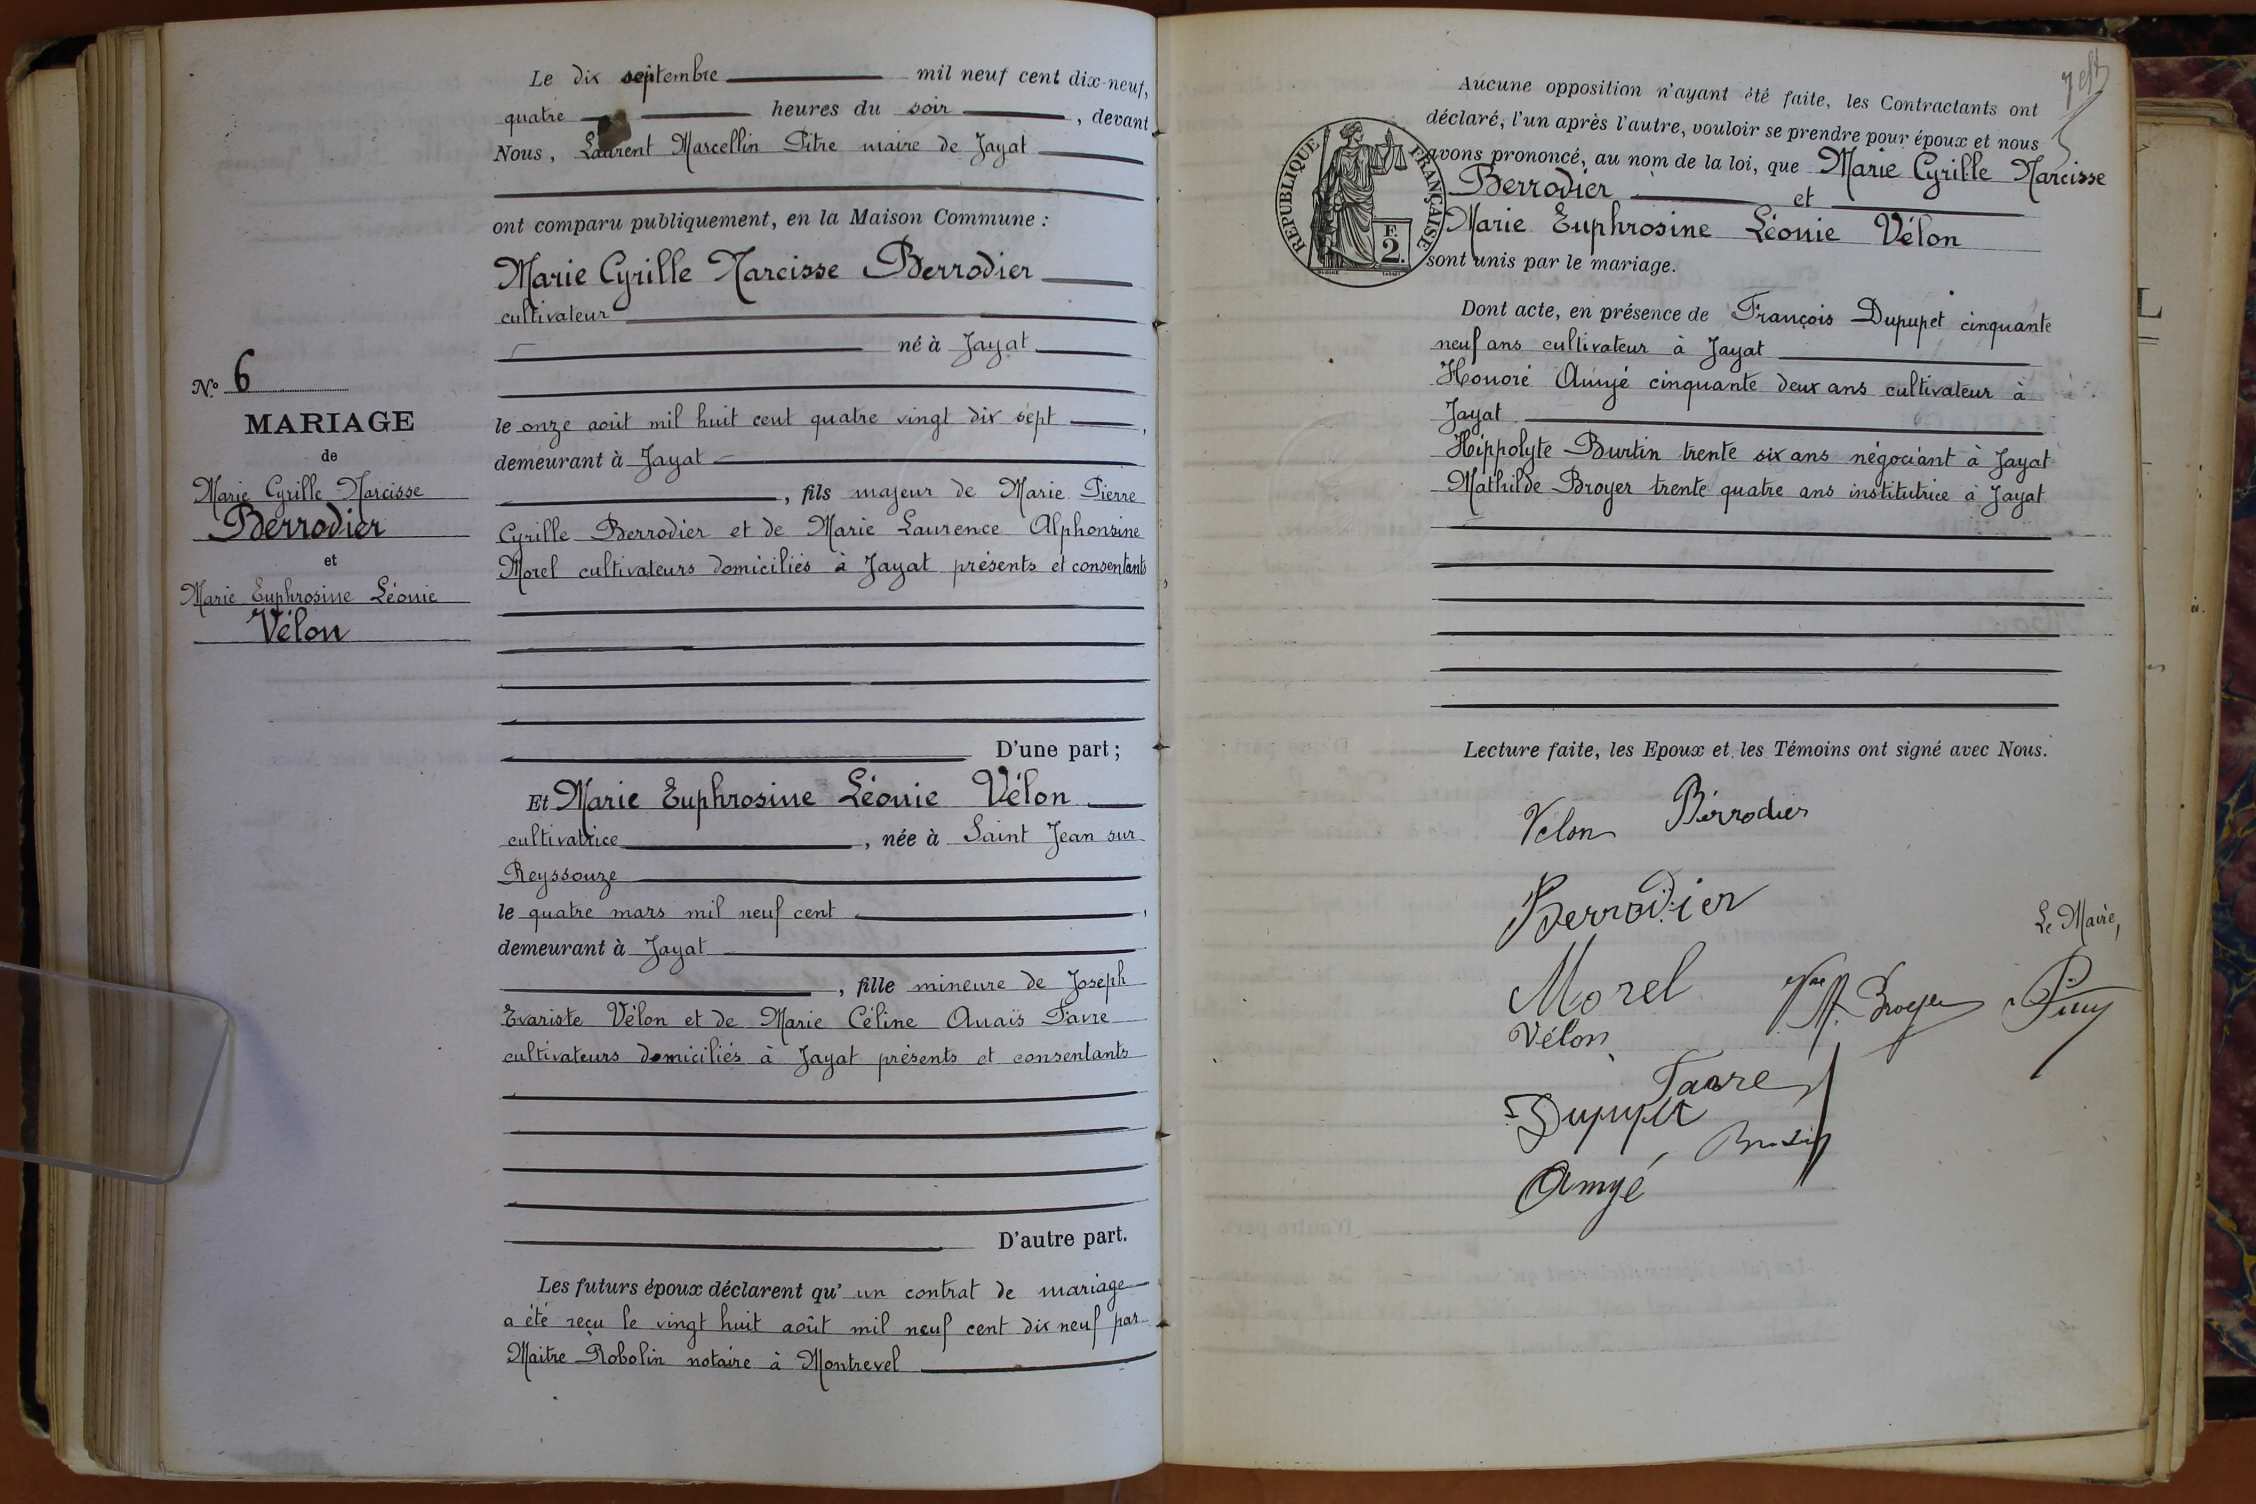 Le dix septembre mil neuf cent dix-neuf,
quatre heures du soir, devant
Nous, Laurent Marcellin Pitre maire de Jayat
ont comparu publiquement, en la Maison Commune :
Marie Cyrille Narcisse Berrodier
cultivateur
né à Jayat
le onze août mil huit cent quatre vingt dix sept,
demeurant à Jayat
, fils majeur de Marie Pierre
Cyrille Berrodier et de Marie Laurence Alphonsine
Morel cultivateurs domiciliés à Jayat présents et consentants
D'une part ;
Et Marie Euphrosine Léonie Vélon
cultivatrice, née à Saint Jean sur
Reyssouze
le quatre mars mil neuf cent,
demeurant à Jayat
, fille mineure de Joseph
Evariste Vélon et de Marie Céline Anaïs Favre
cultivateurs domiciliés à Jayat présents et consentants
D'autre part.
Les futurs époux déclarent qu'un contrat de mariage
a été reçu le vingt huit août mil neuf cent dix neuf par
Maitre Robolin notaire à Montrevel
N° 6
MARIAGE
de
Marie Cyrille Narcisse
Berrodier
et
Marie Euphrosine Léonie
Vélon
Aucune opposition n'ayant été faite, les Contractants ont
déclaré, l'un après l'autre, vouloir se prendre pour époux et nous
avons prononcé, au nom de la loi, que Marie Cyrille Narcisse
Berrodier et
Marie Euphrosine Léonie Vélon
sont unis par le mariage.
RÉPUBLIQUE FRANÇAISE
F.
2.
Dont acte, en présence de François Dupupet cinquante
neuf ans cultivateur à Jayat
Honoré Amyé cinquante deux ans cultivateur à
Jayat
Hippolyte Burtin trente six ans négociant à Jayat
Mathilde Broyer trente quatre ans institutrice à Jayat
Lecture faite, les Epoux et les Témoins ont signé avec Nous.
Vélon Berrodier
Berrodier
Le Maire,
Morel
M. Broyer
Vélon
Favre
Dupupet
Burtin
Amyé